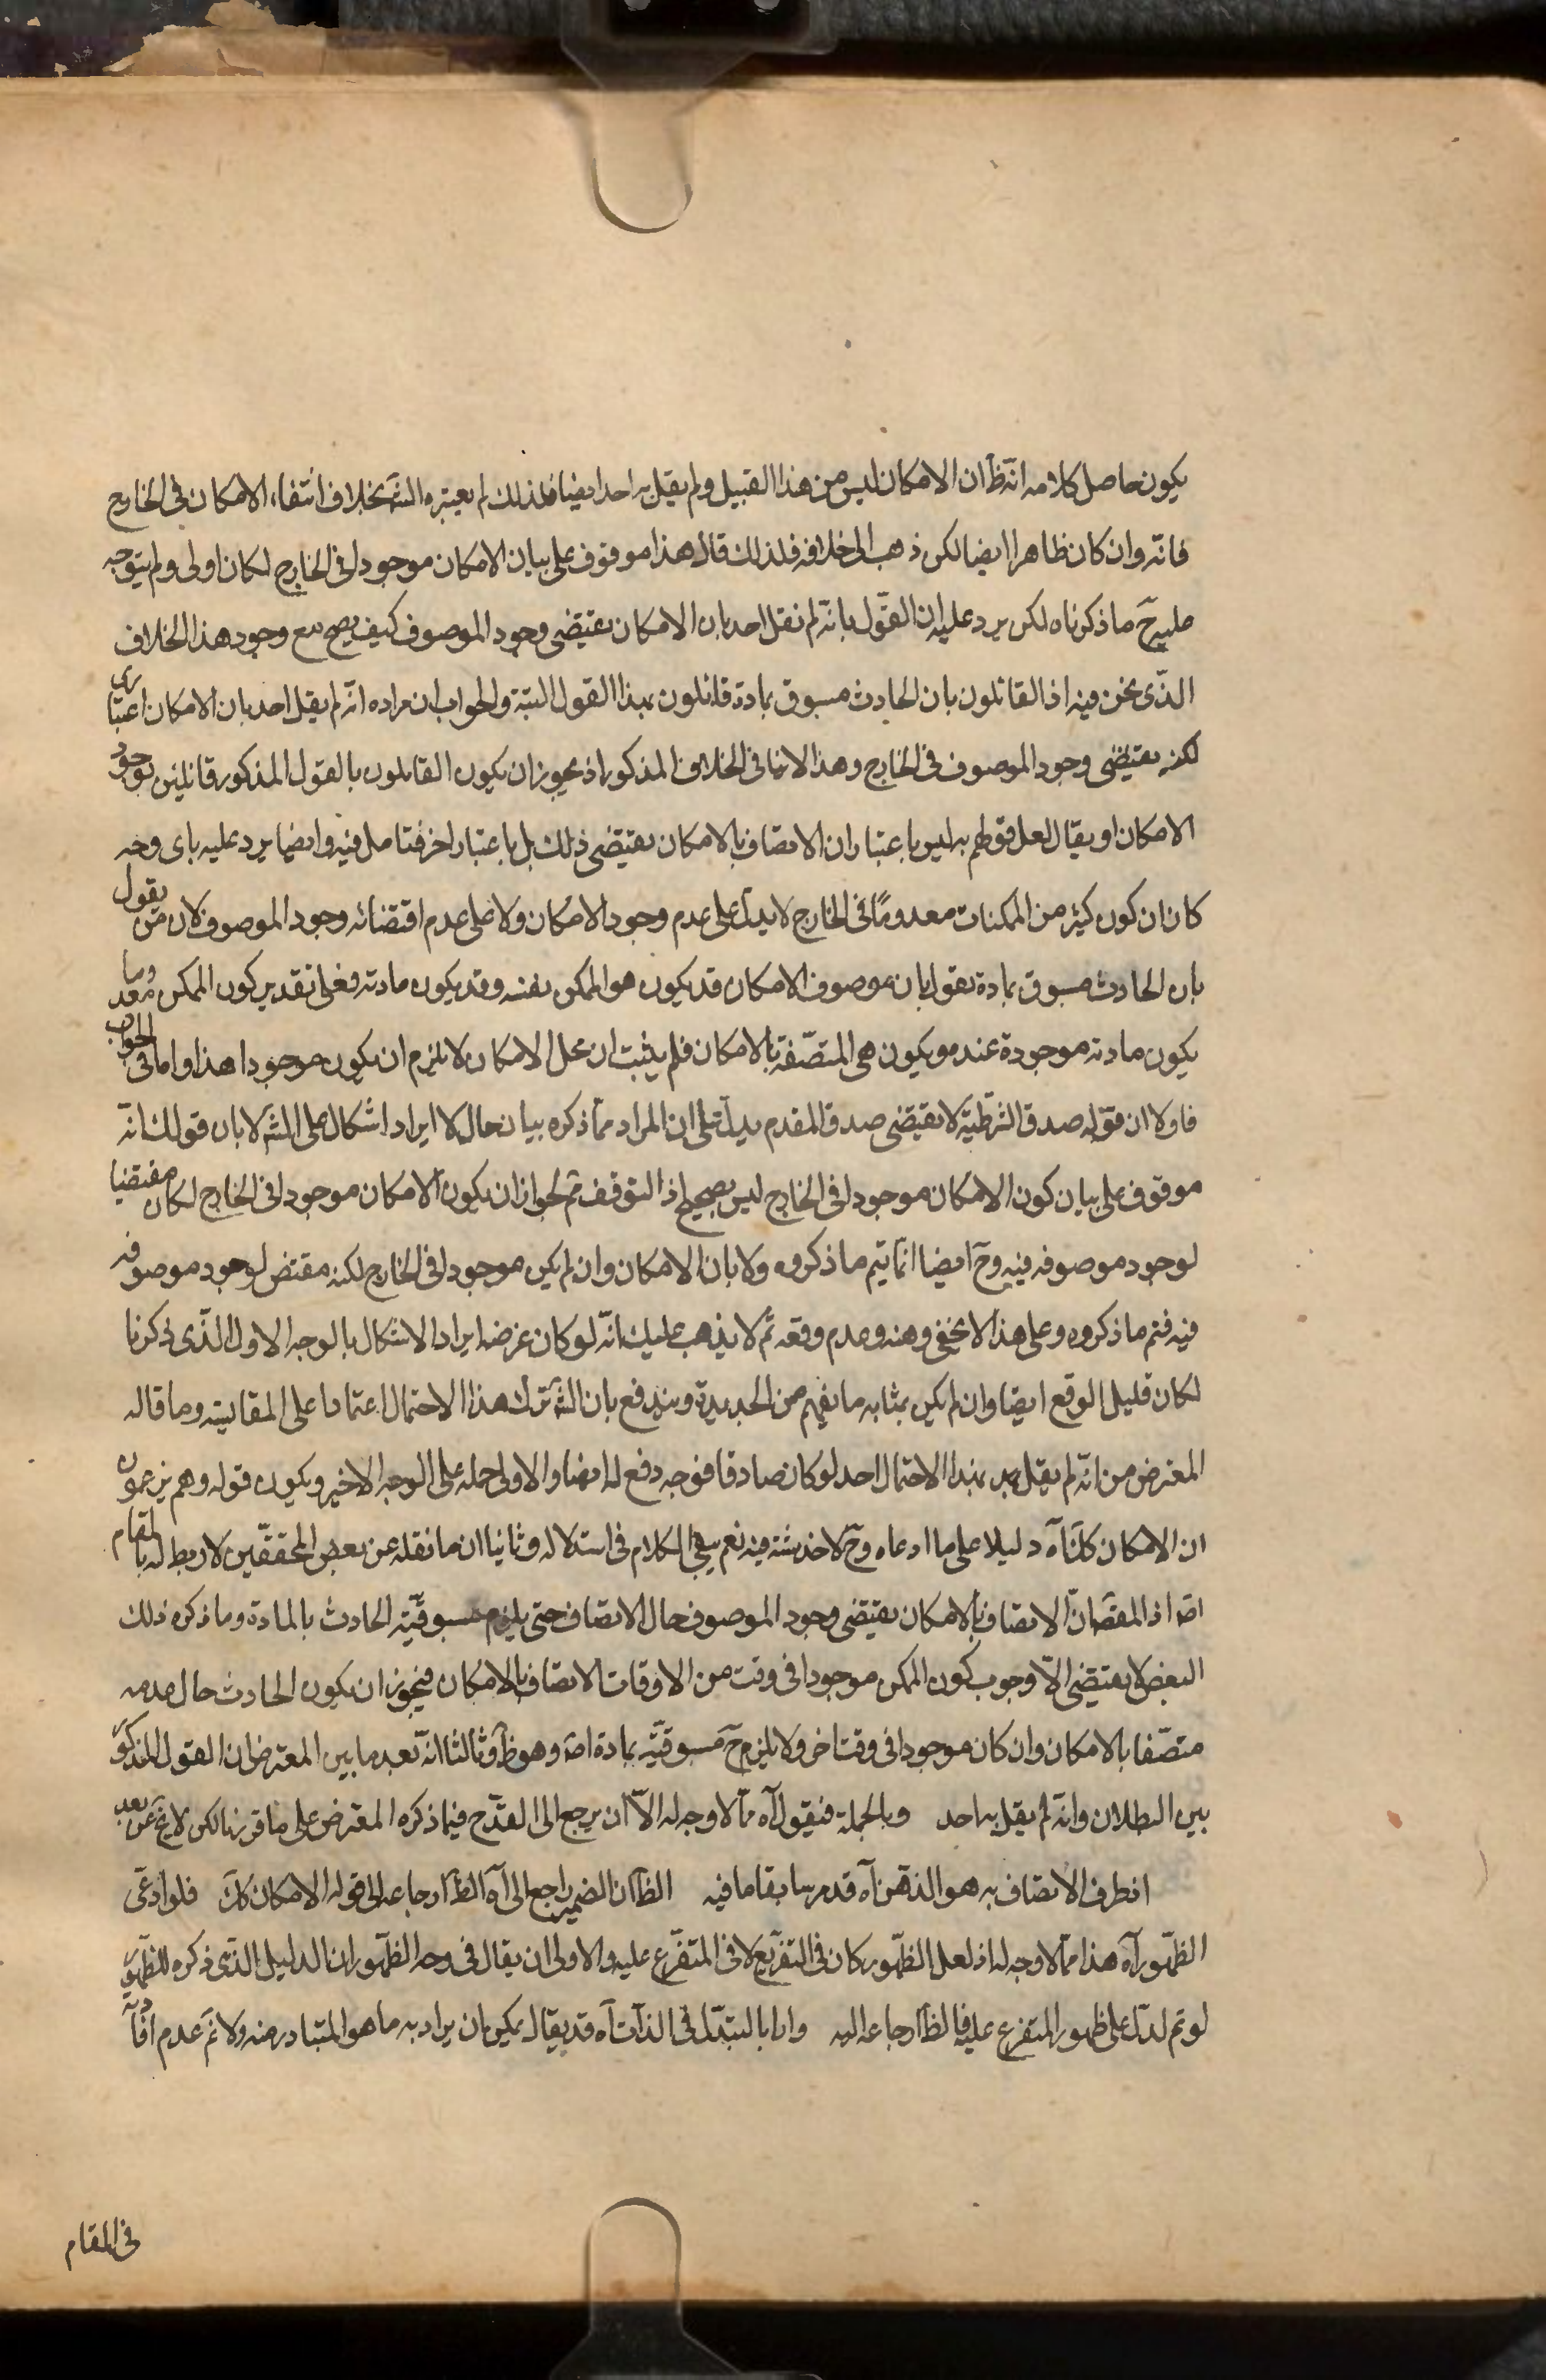 يكون حاصل كلامه انه ظ ان الامكان ليس من هذا القبيل ولم يقل به احد ايضا فلذلك لم يعتبره الشه بخلاف انتفاء الامكان فى الخارج
فانّه وان كان ظاهرا ايضا لكن ذهب الى خلافه فلذلك قال هذا موقوف على بيان الامكان موجود فى الخارج لكان اولى ولم يتوجه
عليه ح ما ذكرناه لكن يرد عليه ان القول بانّه لم نقل احد بان الامكان يقتضى وجود الموصوف كيف يصح مع وجود هذا الخلاف
الذّى نحن فيه اذ القائلون بان الحادث مسبوق بمادة قائلون بهذا القول البتة والجواب ان مراده انّه لم يقل احد بان الامكان اعتبارى
لكنه يقتضى وجود الموصوف فى الخارج وهذا لا ينافى الخلاف المذكور اذ يجوز ان يكون القايلون بالقول المذكور قائلين بوجود
الامكان او يقال لعل قولهم به ليس باعتبار ان الاتصاف بالامكان يقتضى ذلك بل باعتبار اخر فتامل فيه وايضا يرد عليه باى وجه
كان ان كون كثير من الممكنات معدومًا فى الخارج لا يدل على عدم وجود الامكان ولا على عدم اقتضائه وجود الموصوف لان من يقول
بان الحادث مسبوق بمادة يقول بان موصوف الامكان قد يكون هو الممكن بنفسه وقد يكون مادته فعلى تقدير كون الممكن معدوما
يكون مادته موجودة عندهم ويكون هى المتصّفة بالامكان فلم يثبت ان محل الامكان لا يلزم ان يكون موجودا هذا واما فى الجواب
فاولا ان قوله صدق الشرطيّة لا يقتضى صدق المقدم يدل على ان المراد مما ذكره بيان حال لا ايراد اشكال على الشه لا بان قولك انّه
موقوف على بيان كون الامكان موجودا فى الخارج ليس بصحيح اذ التوقف ثم لجواز ان يكون الامكان موجودا فى الخارج لكان مقتضيا
لوجود موصوفه فيه وح ايضا انما يتم ما ذكروه ولا بان الامكان وان لم يكن موجودا فى الخارج لكنه مقتض لوجود موصوفه
فيه فتم ما ذكروه وعلى هذا لا يخفى وهنه وعدم وقعه ثم لا يذهب عليك انّه لو كان غرضه ايراد الاشكال بالوجه الاول الذّى ذكرنا
لكان قليل الوقع ايضا وان لم يكن بمثابه ما يفهم من الجديدة ويندفع بان الشه ترك هذا الاحتمال اعتمادا على المقايسة وما قاله
المعترض من انّه لم يقل بهذا الاحتمال احد لو كان صادقا فوجه دفع له ايضا والاولى حمله على الوجه الاخير ويكون قوله وهم يزعمون
ان الامكان كك آه دليلا على ما ادعاه وح لا خدشة فيه نعم يبقى الكلام فى استدلاله وثانيا ان ما نقله عن بعض المحققّين لا ربط له بالمقام
اصه اذ المقصه انّ الاتصاف بالامكان يقتضى وجود الموصوف حال الاتصاف حتى يلزم مسبوقيّة الحادث بالمادة وما ذكره ذلك
البعض لا يقتضى الّا وجوب كون الممكن موجودا فى وقت من الاوقات الاتصاف بالامكان فيجوز ان يكون الحادث حال عدمه
متصّفا بالامكان وان كان موجودا فى وقت اخر ولا يلزم ح مسبوقيّه بمادة اصه وهو ظ وثالثا انّه بعد ما بين المعترض ان القول المذكور
بين البطلان وانّه لم يقل به احد وبالجملة فنقول آه ممّا لا وجه له الّا ان يرجع الى القدح فيما ذكره المعترض على ما قررنا لكن لا يخ عن بعد
ان ظرف الاتصاف به هو الذهن آه قد مر سابقا ما فيه الظ ان الضمير راجع الى آه الظ ارجاعه الى قوله الامكان كك فلو ادعى
الظهور آه هذا ممّا لا وجه له اذ لعل الظهور كان فى التفريع لا فى المتفرّع عليه والاولى ان يقال فى وجه الظهور ان الدليل الذّى ذكره للظهور
لو تم لدلّ على ظهور المتفرع عليه فالظ ارجاعه اليه وارا بالتبدّل فى الذات آه قد يقال يمكن ان يراد به ما هو المتبادر منه ولا نم عدم
فى المقام